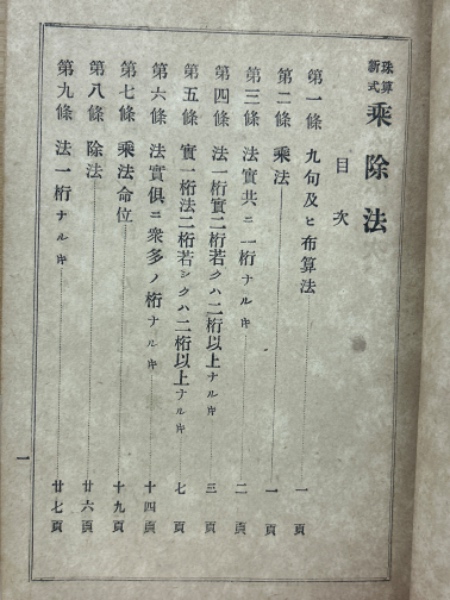 珠算新式 乘除法
目次
第一條 九句及ヒ布算法 一頁
第二條 乘法 一頁
第三條 法實共ニ一桁ナルキ 二頁
第四條 法一桁實二桁若クハ二桁以上ナルキ 三頁
第五條 實一桁法二桁若シクハ二桁以上ナルキ 七頁
第六條 法實俱ニ衆多ノ桁ナルキ 十四頁
第七條 乘法命位 十九頁
第八條 除法 廿六頁
第九條 法一桁ナルキ 廿七頁
一